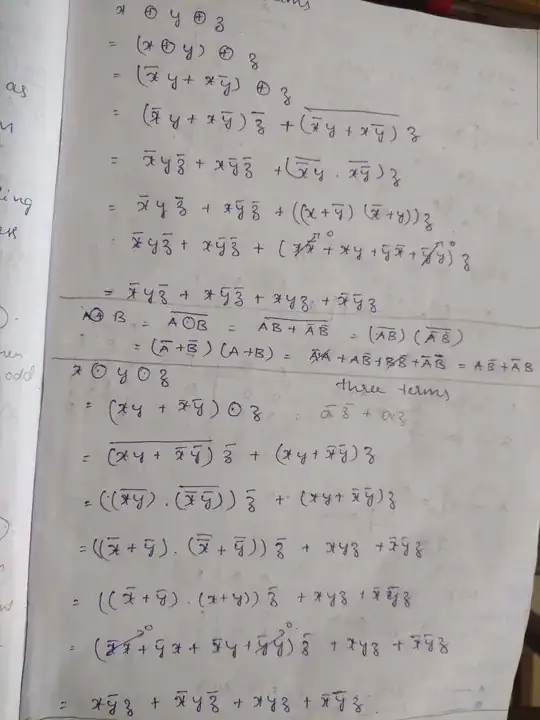 x ⊕ y ⊕ z
= (x ⊕ y) ⊕ z
= (x̅y + xy̅) ⊕ z
= (x̅y + xy̅) z̅ + \overline{(x̅y + xy̅)} z
= x̅yz̅ + xy̅z̅ + (\overline{x̅y} . \overline{xy̅}) z
= x̅yz̅ + xy̅z̅ + ((x+y̅) (x̅+y)) z
x̅yz̅ + xy̅z̅ + (xx̅ + xy + y̅x̅ + y̅y) z
= x̅yz̅ + xy̅z̅ + xyz + x̅y̅z
A⊕B = \overline{A⊙B} = \overline{AB + A̅B̅} = (\overline{AB}) (\overline{A̅B̅})
= (A̅+B̅) (A+B) = A̅A + AB̅ + BB̅ + A̅B = AB̅ + A̅B
three terms
x ⊙ y ⊙ z
= (xy + x̅y̅) ⊙ z a̅z̅ + az
= \overline{(xy + x̅y̅)} z̅ + (xy + x̅y̅) z
= ((\overline{xy}) . (\overline{x̅y̅})) z̅ + (xy + x̅y̅) z
= ((x̅+y̅) . (\overline{x̅}+\overline{y̅})) z̅ + xyz + x̅y̅z
= ((x̅+y̅) . (x+y)) z̅ + xyz + x̅y̅z
= (x̅x + y̅x + x̅y + y̅y) z̅ + xyz + x̅y̅z
= xy̅z̅ + x̅yz̅ + xyz + x̅y̅z.
as
odd